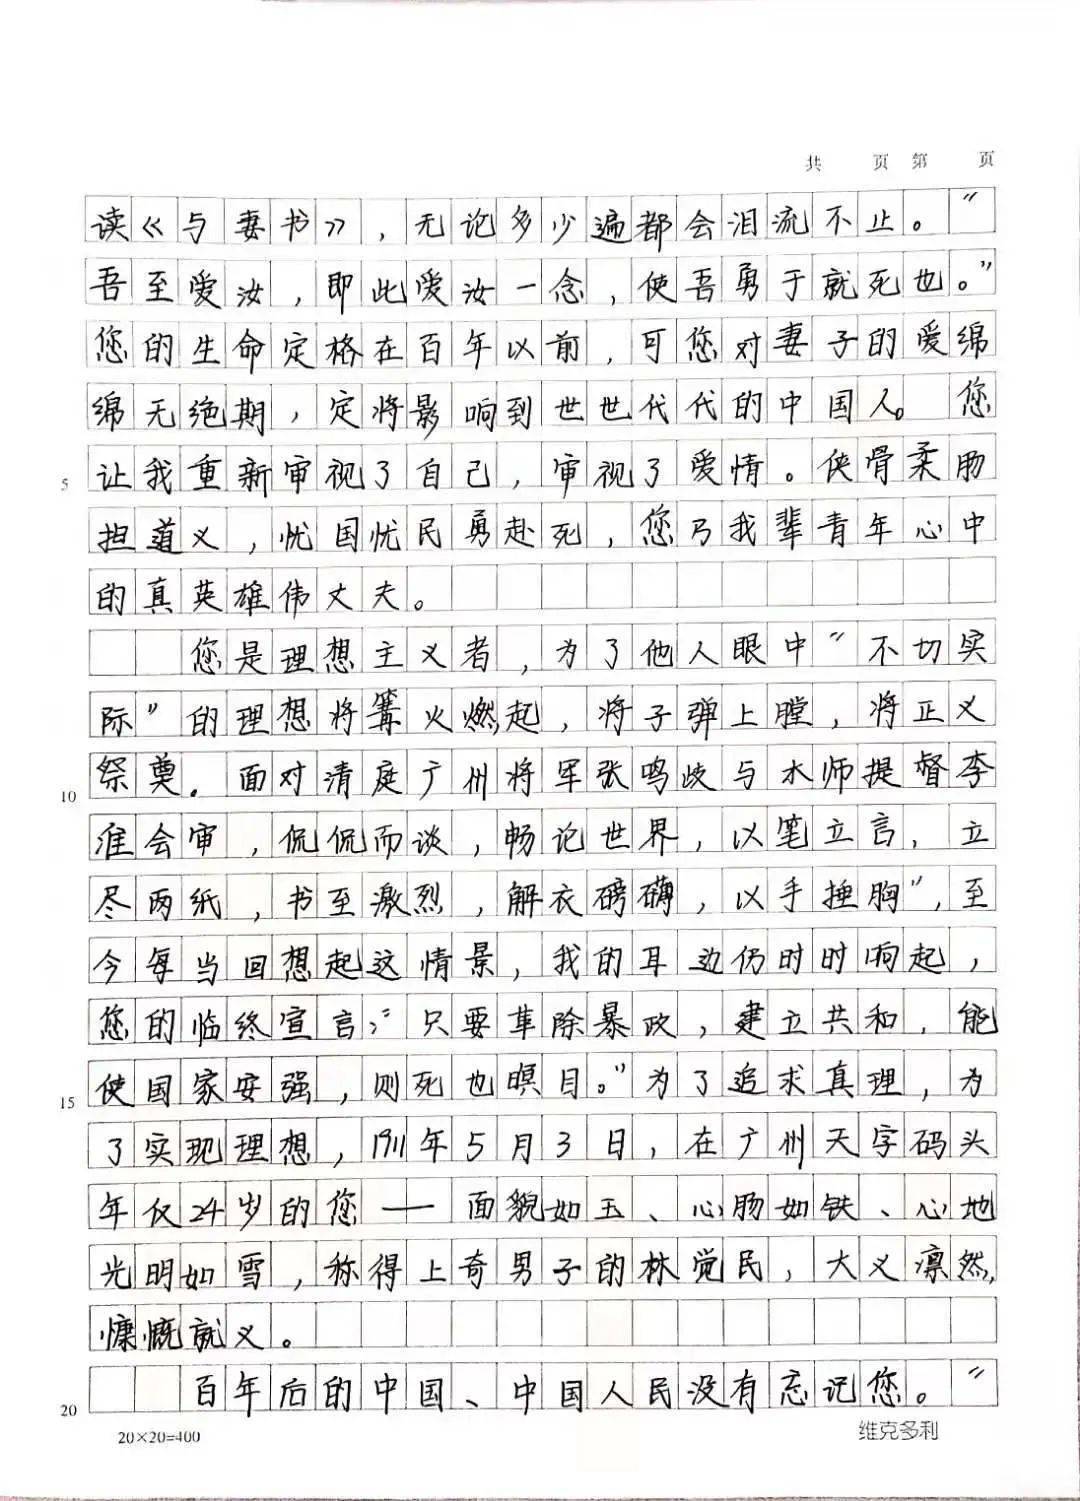 共 页 第 页
读《与妻书》，无论多少遍都会泪流不止。“
吾至爱汝，即此爱汝一念，使吾勇于就死也。”
您的生命定格在百年以前，可您对妻子的爱绵
绵无绝期，定将影响到世世代代的中国人。您
5 让我重新审视了自己，审视了爱情。侠骨柔肠
担道义，忧国忧民勇赴死，您乃我辈青年心中
的真英雄伟丈夫。
您是理想主义者，为了他人眼中“不切实
际”的理想将篝火燃起，将子弹上膛，将正义
10 祭奠．面对清庭广州将军张鸣岐与水师提督李
准会审，侃侃而谈，畅论世界，以笔立言，立
尽两纸，书至激烈，解衣磅礴，以手捶胸”，至
今每当回想起这情景，我的耳边仍时时响起，
您的临终宣言：“只要革除暴政，建立共和，能
15 使国家安强，则死也瞑目。”为了追求真理，为
了实现理想，1911年5月3日，在广州天字码头
年仅24岁的您——面貌如玉、心肠如铁、心地
光明如雪，称得上奇男子的林觉民，大义凛然，
慷慨就义。
20 百年后的中国、中国人民没有忘记您。“
20×20=400 维克多利